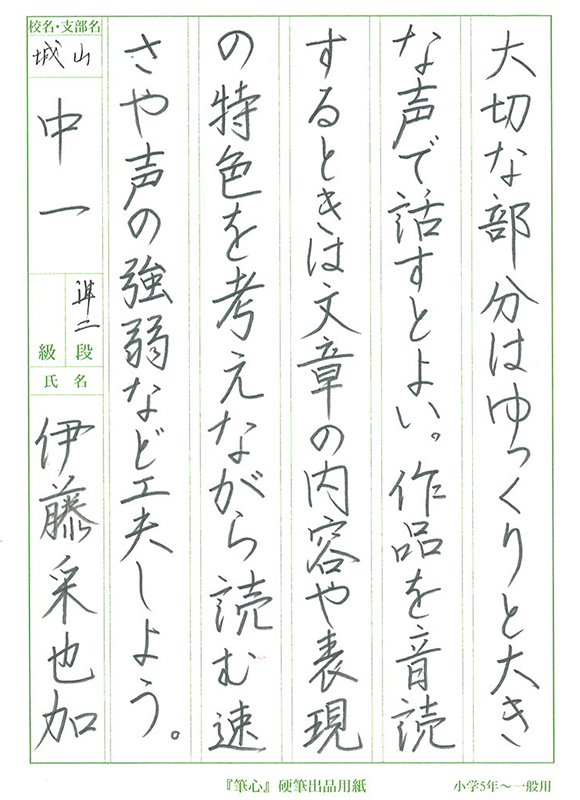 大切な部分はゆっくりと大き
な声で話すとよい。作品を音読
するときは文章の内容や表現
の特色を考えながら読む速
さや声の強弱など工夫しよう。
校名・支部名
城山
中一
準二
級 段
氏名
伊藤采也加
『筆心』硬筆出品用紙
小学5年〜一般用